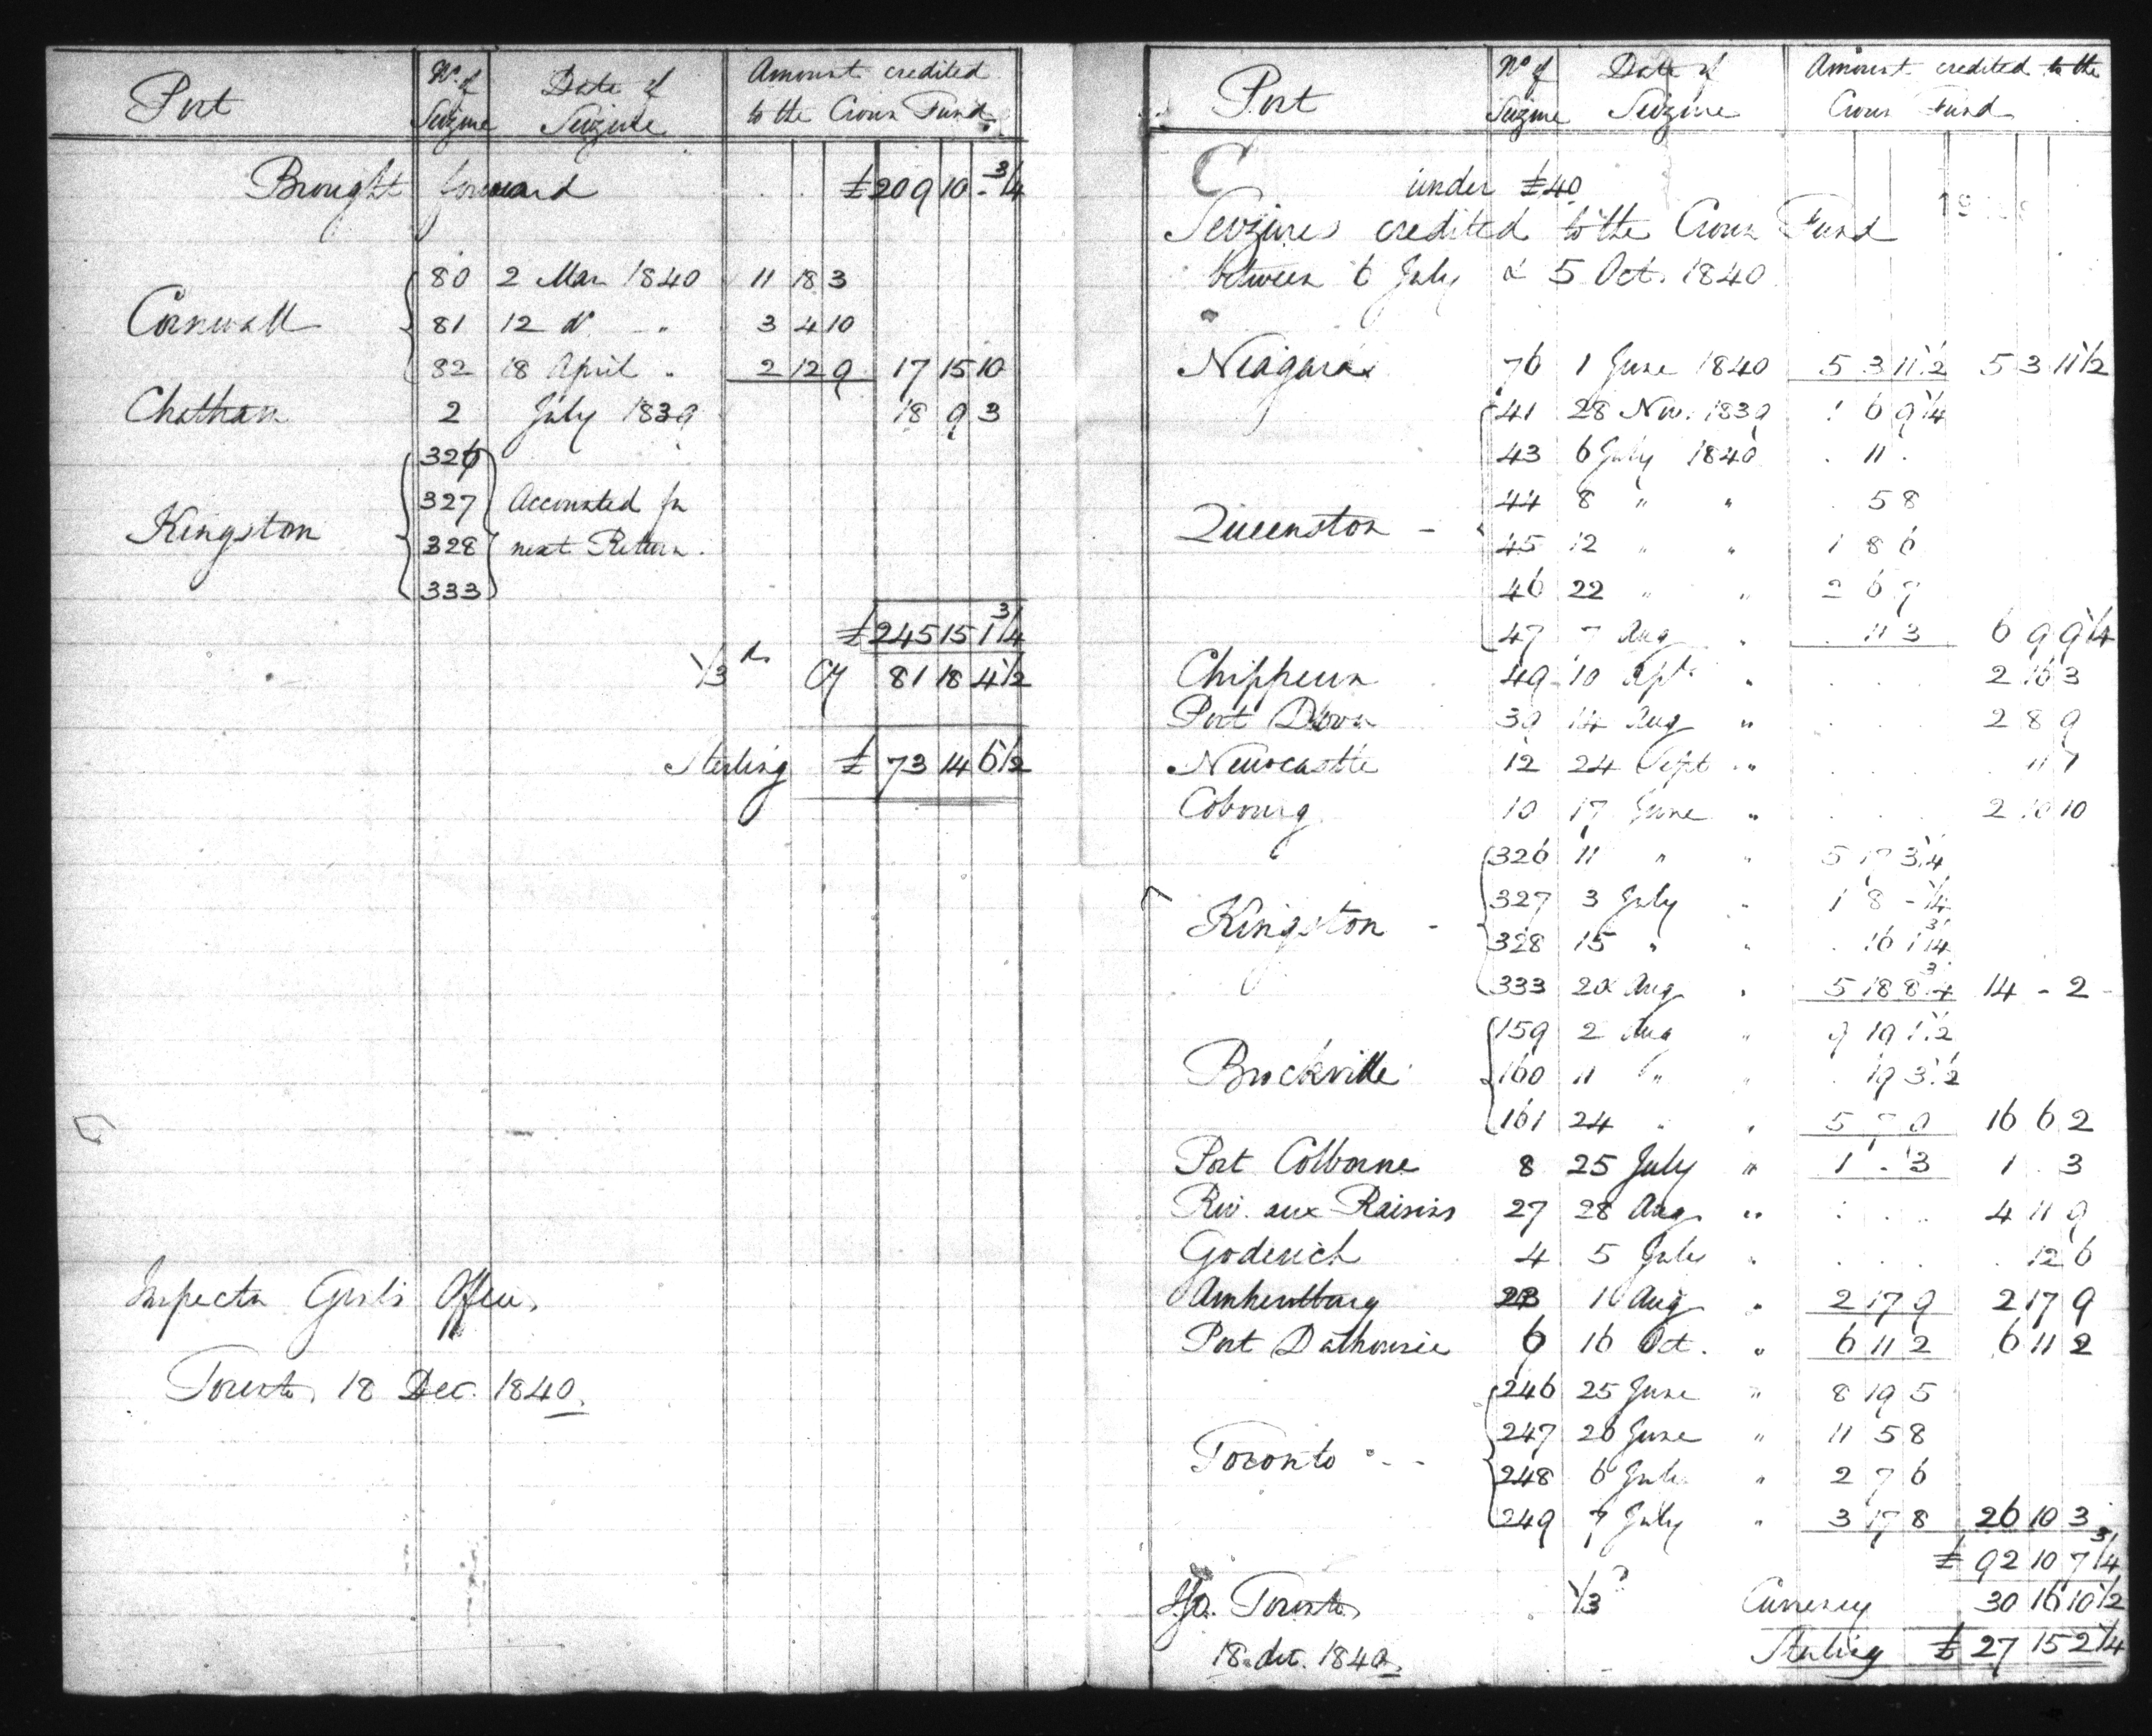 Port No. of Seizure Date of Seizure Amount credited to the Crown Fund
Brought forward £209 10 - 3/4
80 2 Mar 1840 11 18 3
Cornwall 81 12 do " 3 4 10
82 18 April " 2 12 9 17 15 10
Chatham 2 July 1839 18 9 3
326
327 Accounted for
Kingston 328 next Return.
333
£245 15 1 3/4
1/3 ds Cy 81 18 4 1/2
Sterling £ 73 14 6 1/2
Inspector Genl's Office,
Toronto, 18 Dec. 1840.
Port No. of Seizure Date of Seizure Amount credited to the Crown Fund
C under £40
Seizures credited to the Crown Fund
between 6 July & 5 Oct. 1840
Niagara 76 1 June 1840 5 3 11 1/2 5 3 11 1/2
41 28 Nov. 1839 1 6 9 1/4
43 6 July 1840 . 11 .
Queenston - 44 8 " " . 5 8
45 12 " " 1 8 6
46 22 " " 2 6 7
47 7 Aug " . 11 3 6 9 9 1/4
Chippewa 49 10 " 2 16 3
Port Dover 39 14 Aug " 2 8 9
Newcastle 12 24 Sept " 11 7
Cobourg 10 17 June " 2 10 10
326 11 " " 5 17 3 1/4
327 3 July " 1 8 - 1/4
Kingston - 328 15 " " . 16 1 3/4
333 20 Aug " 5 18 8 3/4 14 - 2 -
159 2 Aug " 9 19 1 1/2
Brockville 160 11 " " . 19 3 1/2
161 24 " " 5 7 9 16 6 2
Port Colborne 8 25 July " 1 . 3 1 . 3
Riv. aux Raisins 27 28 Aug " 4 11 9
Goderich 4 5 July " . 12 6
Amherstburg 23 1 Aug " 2 17 9 2 17 9
Port Dalhousie 6 16 Oct. " 6 11 2 6 11 2
246 25 June " 8 19 5
247 26 June " 11 5 8
Toronto - - 248 6 July " 2 7 6
249 7 July " 3 17 8 26 10 3
£ 92 10 7 3/4
Toronto, 1/3 Currency 30 16 10 1/2
18 dec. 1840. Sterling £ 27 15 2 1/4